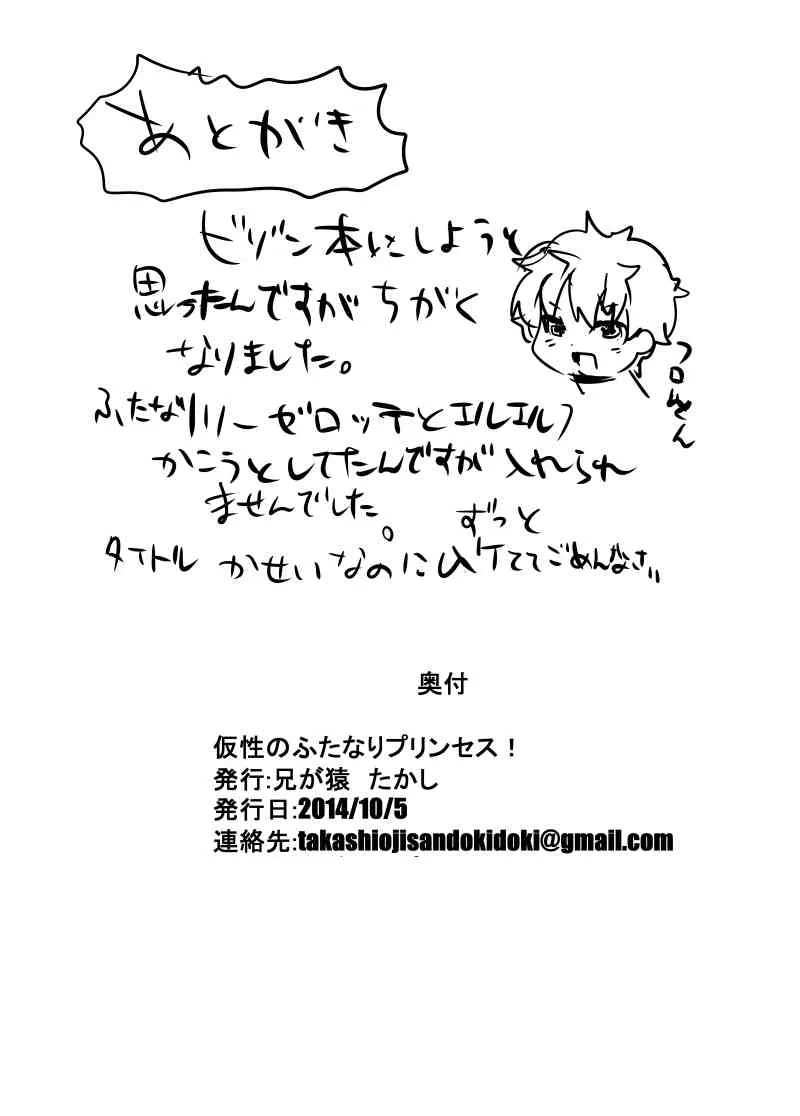 あとがき
ビゾン本にしようと
思ったんですがちがく
なりました。
フロルさん
ふたなりリーゼロッテとエルエルフ
かこうとしてたんですが入れられ
ませんでした。ずっと
タイトル かせいなのに
ててごめんなさい
奥付
仮性のふたなりプリンセス！
発行:兄が猿　たかし
発行日:2014/10/5
連絡先:takashiojisandokidoki@gmail.com